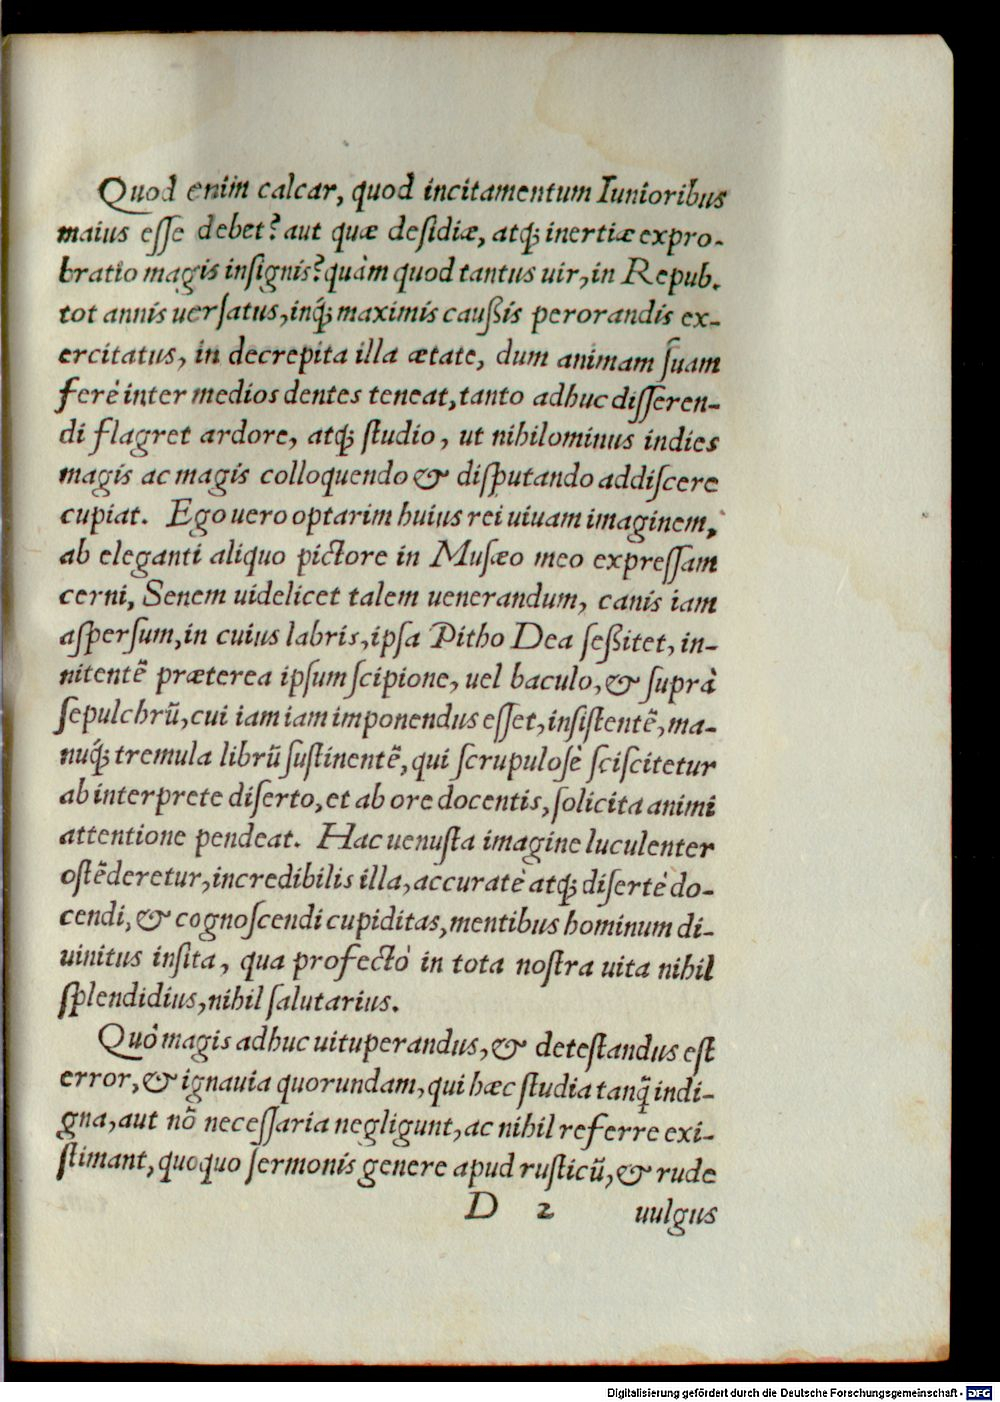 Quod enim calcar, quod incitamentum Iunioribus
maius eſſe debet? aut quæ deſidiæ, atq́; inertiæ expro-
bratio magis inſignis? quàm quod tantus uir, in Repub.
tot annis uerſatus, inq́; maximis cauſsis perorandis ex-
ercitatus, in decrepita illa ætate, dum animam ſuam
ferè inter medios dentes teneat, tanto adhuc diſſeren-
di flagret ardore, atq́; ſtudio, ut nihilominus indies
magis ac magis colloquendo & diſputando addiſcere
cupiat. Ego uero optarim huius rei uiuam imaginem,
ab eleganti aliquo pictore in Muſæo meo expreſſam
cerni, Senem uidelicet talem uenerandum, canis iam
aſperſum, in cuius labris, ipſa Pitho Dea ſeſsitet, in-
nitentẽ præterea ipſum ſcipione, uel baculo, & ſuprà
ſepulchrũ, cui iam iam imponendus eſſet, inſiſtentẽ, ma-
nuq́; tremula librũ ſuſtinentẽ, qui ſcrupuloſè ſciſcitetur
ab interprete diſerto, et ab ore docentis, ſolicita animi
attentione pendeat. Hac uenuſta imagine luculenter
oſtẽderetur, incredibilis illa, accuratè atq́; diſertè do-
cendi, & cognoſcendi cupiditas, mentibus hominum di-
uinitus inſita, qua profectò in tota noſtra uita nihil
ſplendidius, nihil ſalutarius.
Quò magis adhuc uituperandus, & deteſtandus eſt
error, & ignauia quorundam, qui hæc ſtudia tanq̃ indi-
gna, aut nõ neceſſaria negligunt, ac nihil referre exi-
ſtimant, quoquo ſermonis genere apud ruſticũ, & rude
D 2 uulgus
Digitalisierung gefördert durch die Deutsche Forschungsgemeinschaft - DFG